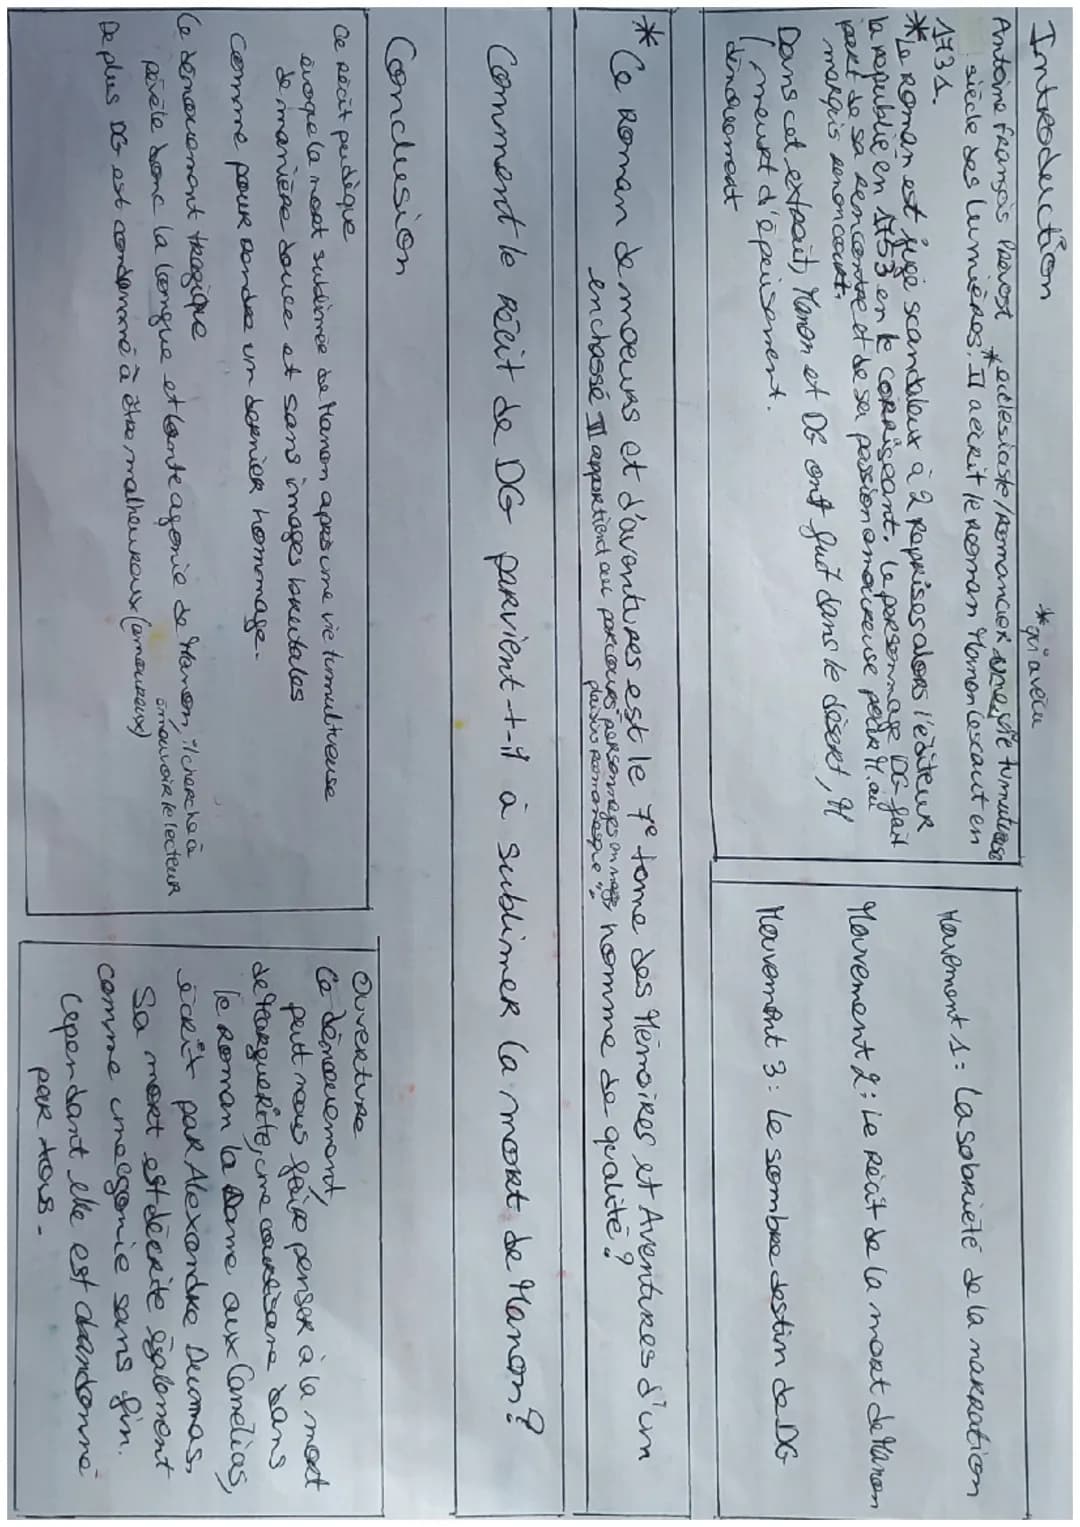 Introduction
* qui a vécu
Antoine François Prévost * ecclésiaste/romancier une vie tumultueuse
siècle des Lumières. Il a écrit le roman Manon Lescaut en
1731.
* Le roman est jugé scandaleux à 2 reprises alors l'éditeur
la republie en 1753 en le corrigeant. Le personnage DG fait
part de sa rencontre et de sa passion amoureuse pour M. au
marquis renoncourt.
Dans cet extrait, Manon et DG ont fuit dans le désert, M
meurt d'épuisement.
dénouement
Mouvement 1 : La sobriété de la narration
Mouvement 2 : Le récit de la mort de Manon
Mouvement 3 : Le sombre destin de DG
* Ce roman de moeurs et d'aventures est le 7e tome des Mémoires et Aventures d'un
enchassé Il appartient au parcours "personnages en marge homme de qualité ?
plaisirs romanesque".
Comment le récit de DG parvient-t-il à sublimer la mort de Manon ?
Conclusion
Ce récit pudique
évoque la mort sublimée de Manon apres une vie tumultueuse
de manière douce et sans images brutales
comme pour rendre un dernier hommage.
Ce dénouement tragique
révèle donc la longue et lente agonie de Manon, il cherche à
émouvoir le lecteur
De plus DG est condamné à être malheureux (amoureux)
Ouverture
Ce dénouement,
peut nous faire penser à la mort
de Marguerite, une courtisane dans
le roman la Dame aux Camélias,
écrit par Alexandre Dumas,
Sa mort est décrite également
comme une agonie sans fin.
Cependant elle est abandonné
par tous.